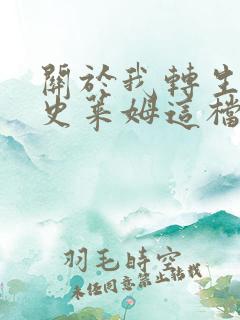 關於我轉生
史萊姆這檔
羽毛時空
未經同意禁止轉載